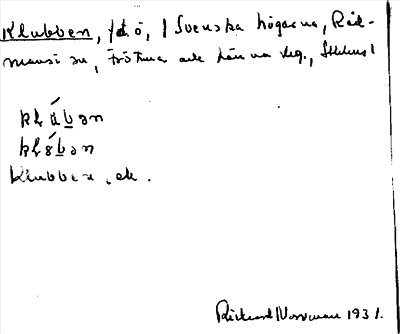 Klubben, f.d. ö, i Svenska högarna, Råd-
mansö sn, Frötuna och Länna skg., Sthlms l
klúbən
Klubben, ek.
Rickard Norrman 1931.